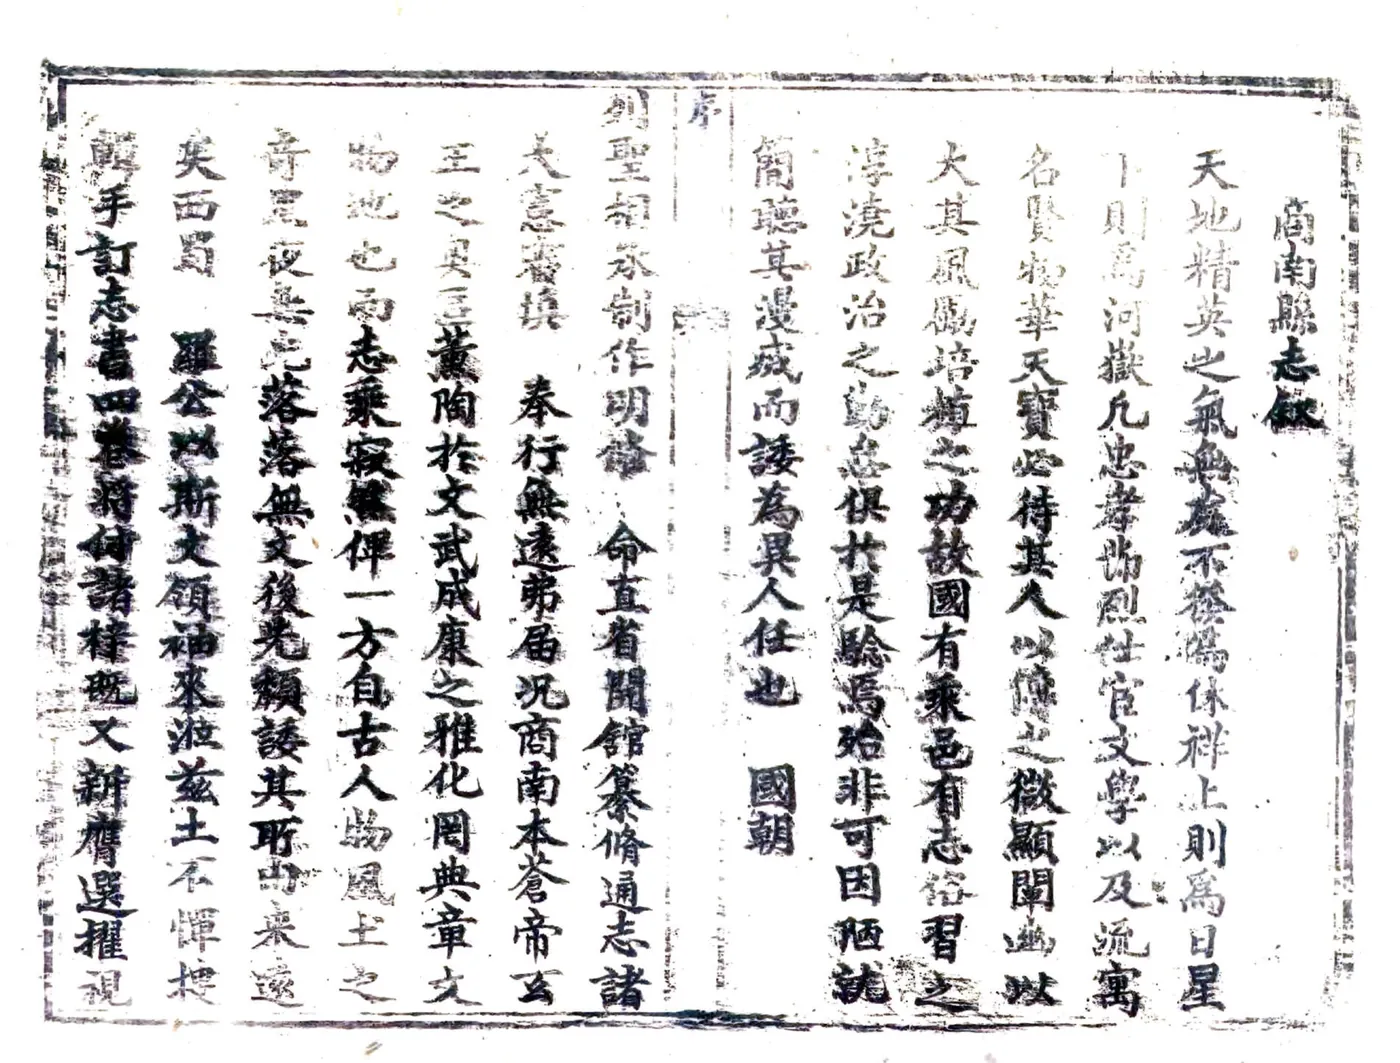 商南縣志敘
天地精英之氣無處不發為休祥上則為日星
下則為河嶽凡忠孝節烈仕宦文學以及流寓
名賢物華天寶必待其人以傳之微顯闡幽以
大其風勵培植之功故國有乘邑有志俗習之
淳澆政治之勤怠俱於是騐焉殆非可因陋就
簡聽其漫烕而諉為異人任也　國朝
序
列聖相承制作明諭　命直省開館纂脩通志諸
大憲　奉行無遠弗屆況商南本蒼帝玄
王之奧區薰陶於文武成康之雅化罔典章文
物地也而志乘寂　俾一方自古人物風土之
奇　夜無光落落無文後先頹諉其所由來遠
矣西蜀　羅公以斯文領袖來涖茲土不憚
手訂志書四卷將付諸梓既又新膺選擢視